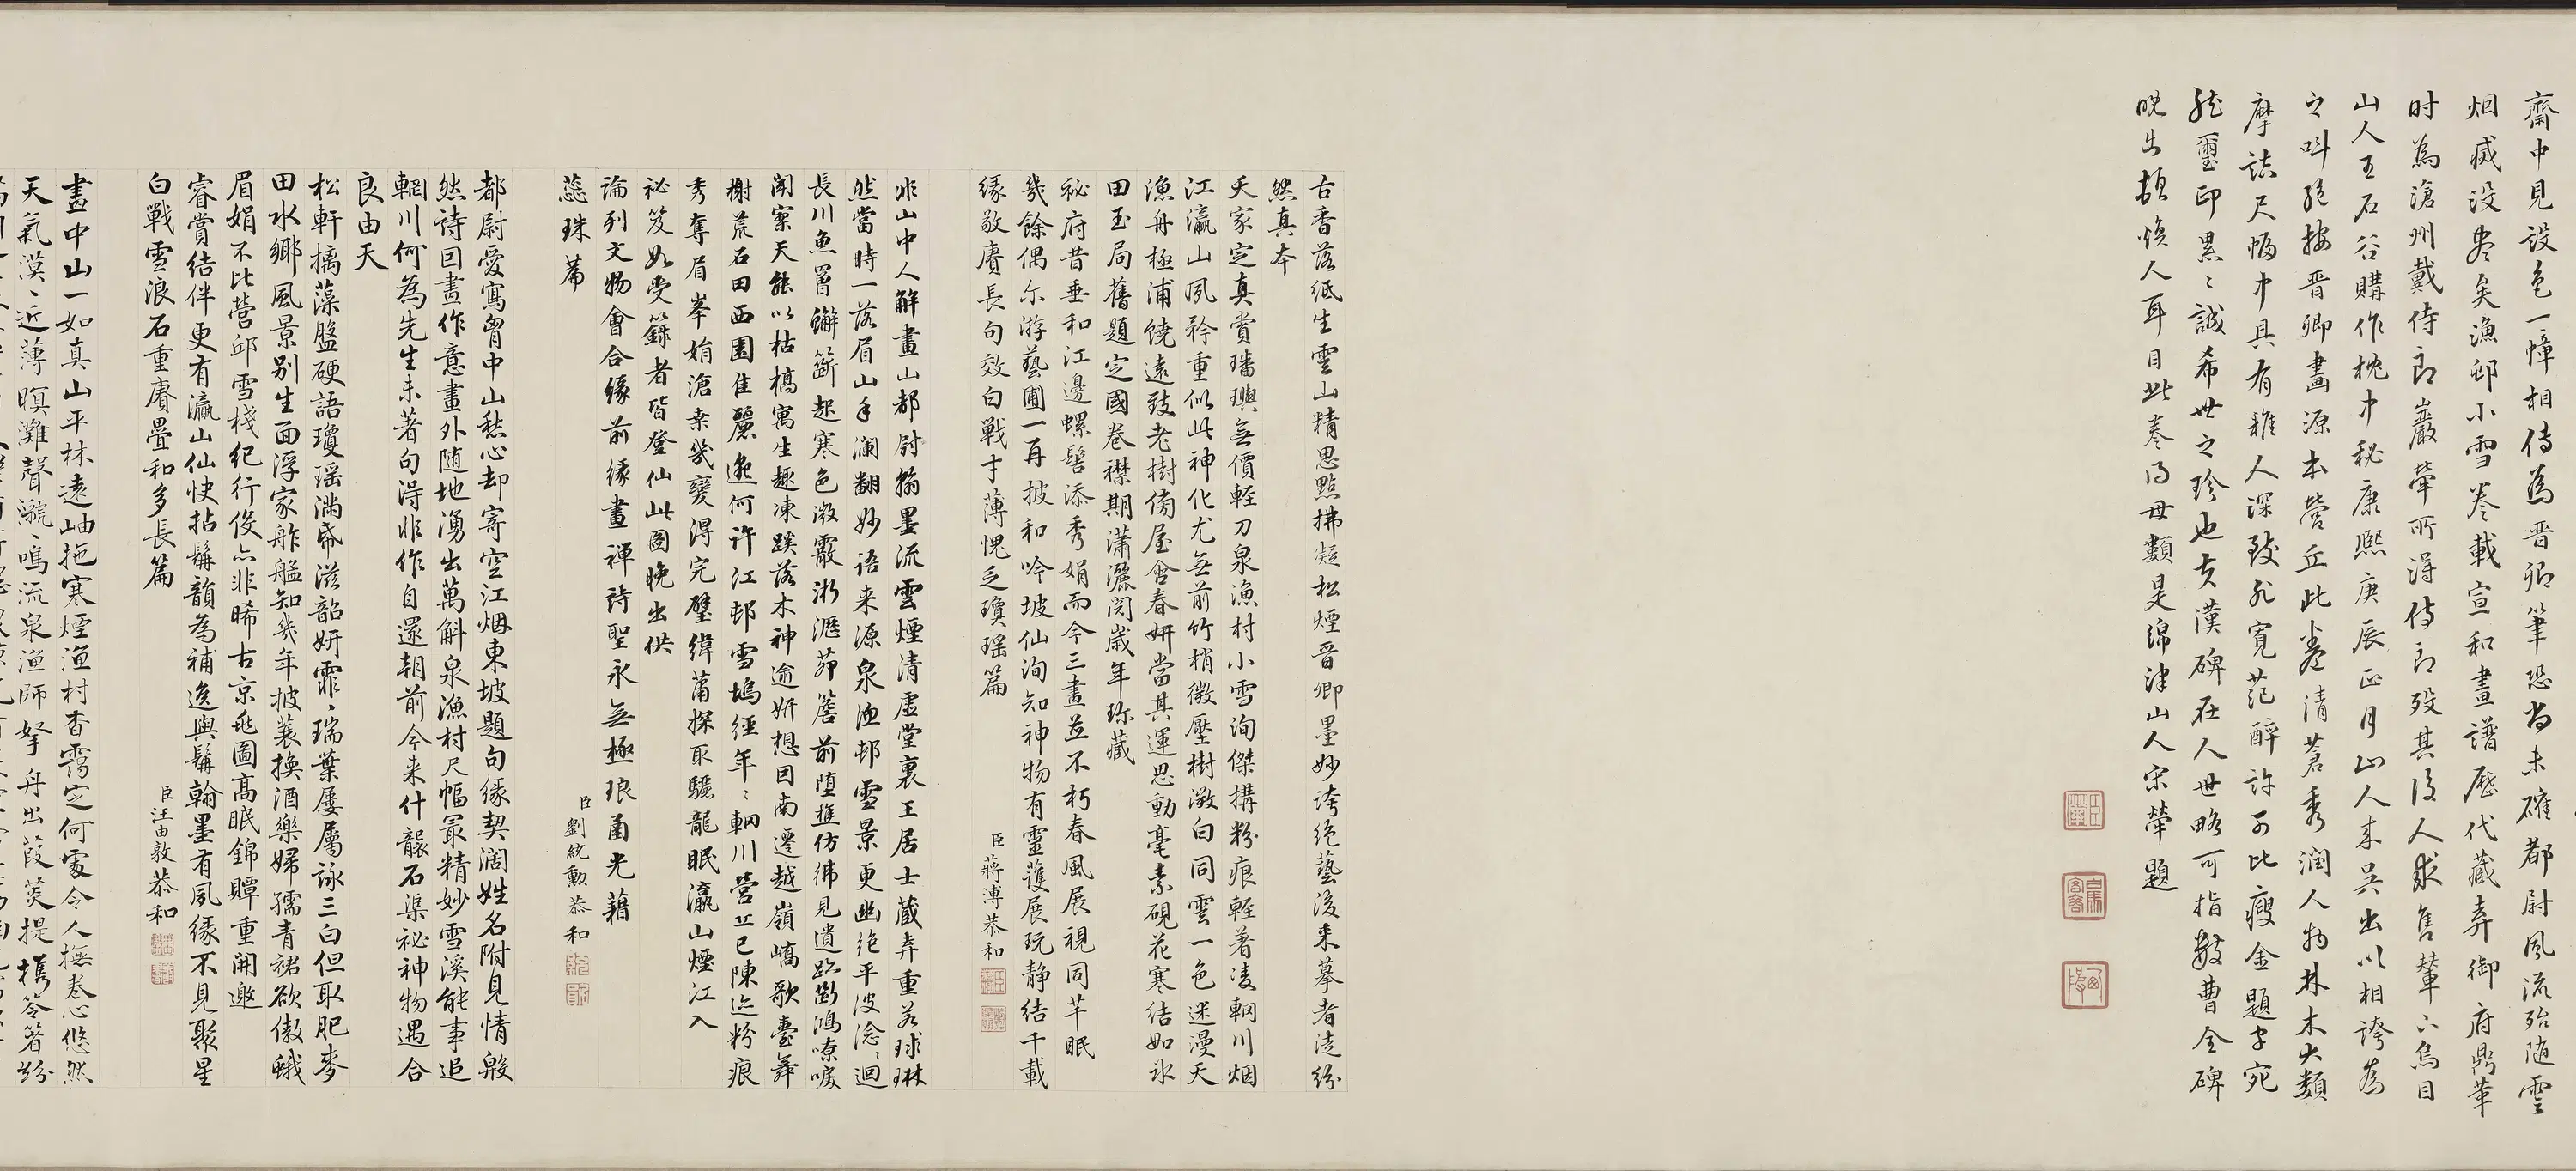 齋中見設色一幛相傳為晋卿筆恐尚未確都尉風流殆随雲
烟滅没盡矣漁邨小雪卷載宣和畫譜歷代藏弆御府鼎革
时為滄州戴侍郎巖犖所得侍郎殁其後人求售輦下烏目
山人王石谷購作枕中秘康熙庚辰正月山人来吴出以相誇為
之叫絕按晋卿畫源本營丘此卷清蒼秀潤人物林木大類
摩詰尺幅中具有雅人深致孔寬范醉許可比瘦金題字宛
然璽印累〻誠希世之珍也夫漢碑在人世略可指數曹全碑
晚出頓煥人耳目此卷得毋類是綿津山人宋犖題
古香落紙生雲山精思點拂凝松煙晋卿墨妙誇绝藝後来摹者徒纷
然真本
天家定真賞璠璵無價輕刀泉漁村小雪洵傑搆粉痕輕著凌輞川烟
江瀛山夙矜重似此神化尤無前竹梢微壓樹澂白同雲一色迷漫天
漁舟極浦饒遠致老樹傍屋含春妍當其運思動毫素硯花寒結如冰
田玉局舊題定國卷襟期瀟灑閱歲年珎藏
秘府昔垂和江邊螺髻添秀娟而今三畫並不朽春風展視同芊眠
幾餘偶尔游藝圃一再披和吟坡仙洵知神物有靈護展玩静結千載
緣敬賡長句效白戰才薄愧乏瓊瑶篇
臣蔣溥恭和
非山中人解畫山都尉翰墨流雲煙清虛堂裏王居士藏弆重若球琳
然當時一落眉山手瀾翻妙語来源泉漁邨雪景更幽绝平波淰〻迴
長川魚罾蠏籪起寒色微霰淅瀝茆簷前墮樵仿彿見遺跡斷鴻嘹唳
闻寥天能以枯槁寓生趣凍蹊落木神逾妍想囙南遷越嶺嶠歌臺舞
榭荒石田西園佳麗邈何许江邨雪塢經年〻輞川營丘已陳迹粉痕
秀奪眉峯娟滄桒幾變淂完璧緯蕭探取驪龍眠瀛山煙江入
祕笈如受籙者皆登仙此圖晚出供
論列文物會合緣前緣畫禪詩聖永無極琅函光藉
蕊珠篇
臣劉統勳恭和
都尉愛寫胷中山愁心却寄空江烟東坡題句緣契闊姓名附見情殷
然詩囙畫作意畫外随地湧出萬斛泉漁村尺幅最精妙雪溪能事追
輞川何為先生未著句淂非作自還朝前今来什襲石渠祕神物遇合
良由天
松軒摛藻盤硬語瓊瑶满帋滋韶妍霏〻瑞葉屢屬詠三白但取肥麥
田水鄉風景别生面浮家舴艋知幾年披蓑换酒樂婦孺青裙欲傲蛾
眉娟不比營邱雪棧纪行役亦非晞古京兆圖高眠錦贉重開邀
睿賞结伴更有瀛山仙快拈髯韻為補逸興髯翰墨有夙缘不見聚星
白戰雪浪石重賡疊和多長篇
臣汪由敦恭和
畫中山一如真山平林遠岫拖寒煙漁村杳靄定何處令人撫卷心悠然
天氣漠〻近薄暝灘聲㶁〻鳴流泉漁師拏舟出葭菼提攜笭箵纷